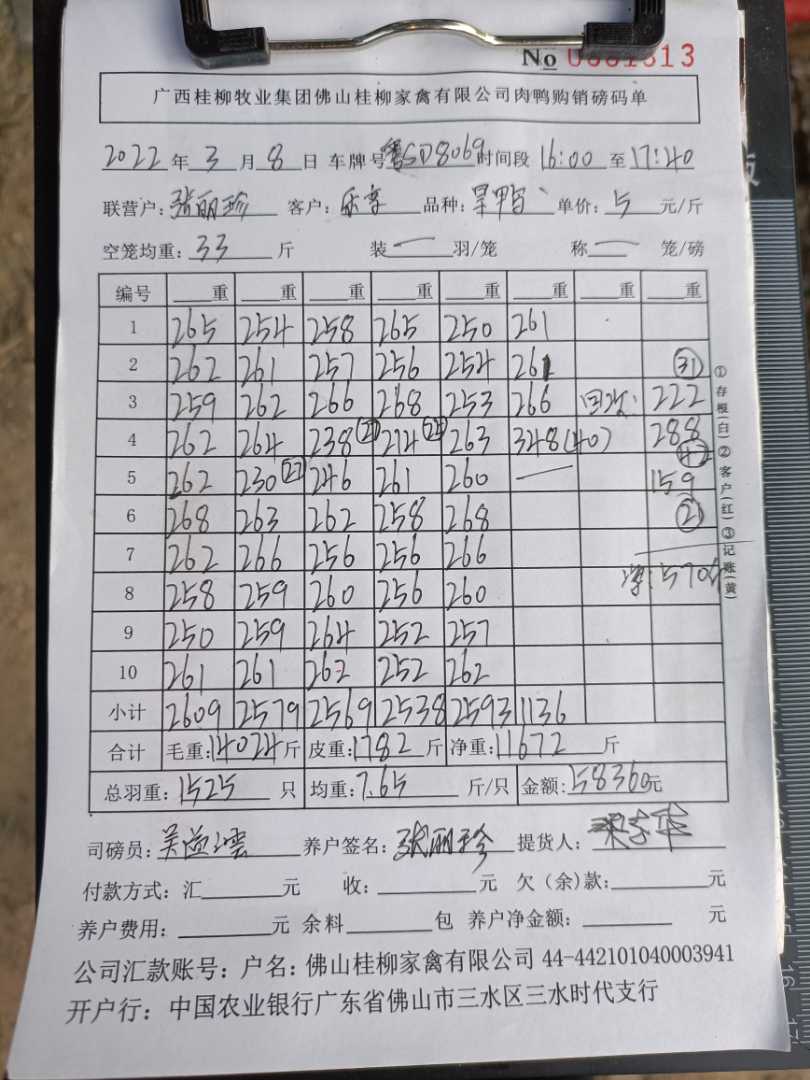 No 0001813
广西桂柳牧业集团佛山桂柳家禽有限公司肉鸭购销磅码单
2022年3月8日 车牌号粤SD8069时间段16:00至17:40
联营户:张丽珍 客户:乐享 品种:旱鸭 单价:5元/斤
空笼均重:33斤 装一羽/笼 称一笼/磅
编号 重 重 重 重 重 重 重 重
1 265 254 258 265 250 261
2 262 261 257 256 254 261 (31)
3 259 262 266 268 253 266 回次: 222
4 262 264 238 214 263 348(40) 288
5 262 230(22) 246 261 260 — 159
6 268 263 262 258 268 (2)
7 262 266 256 256 266
8 258 259 260 256 260 1570
9 250 259 264 252 257
10 261 261 262 252 262
小计 2609 2579 2569 2538 2593 1136
合计 毛重:14024斤 皮重:1782斤 净重:11672斤
总羽重:1525只 均重:7.65斤/只 金额:58360元
司磅员: 养户签名:张丽珍 提货人:
付款方式:汇 元 收: 元 欠(余)款: 元
养户费用: 元 余料 包 养户净金额: 元
公司汇款账号:户名:佛山桂柳家禽有限公司 44-442101040003941
开户行:中国农业银行广东省佛山市三水区三水时代支行
①存根(白)②客户(红)③记账(黄)